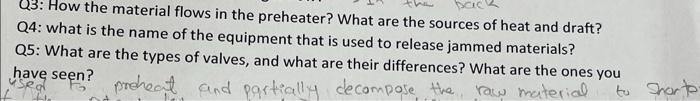 the back
Q3: How the material flows in the preheater? What are the sources of heat and draft?
Q4: what is the name of the equipment that is used to release jammed materials?
Q5: What are the types of valves, and what are their differences? What are the ones you
have seen?
used to preheat and partially decompose the raw material to short